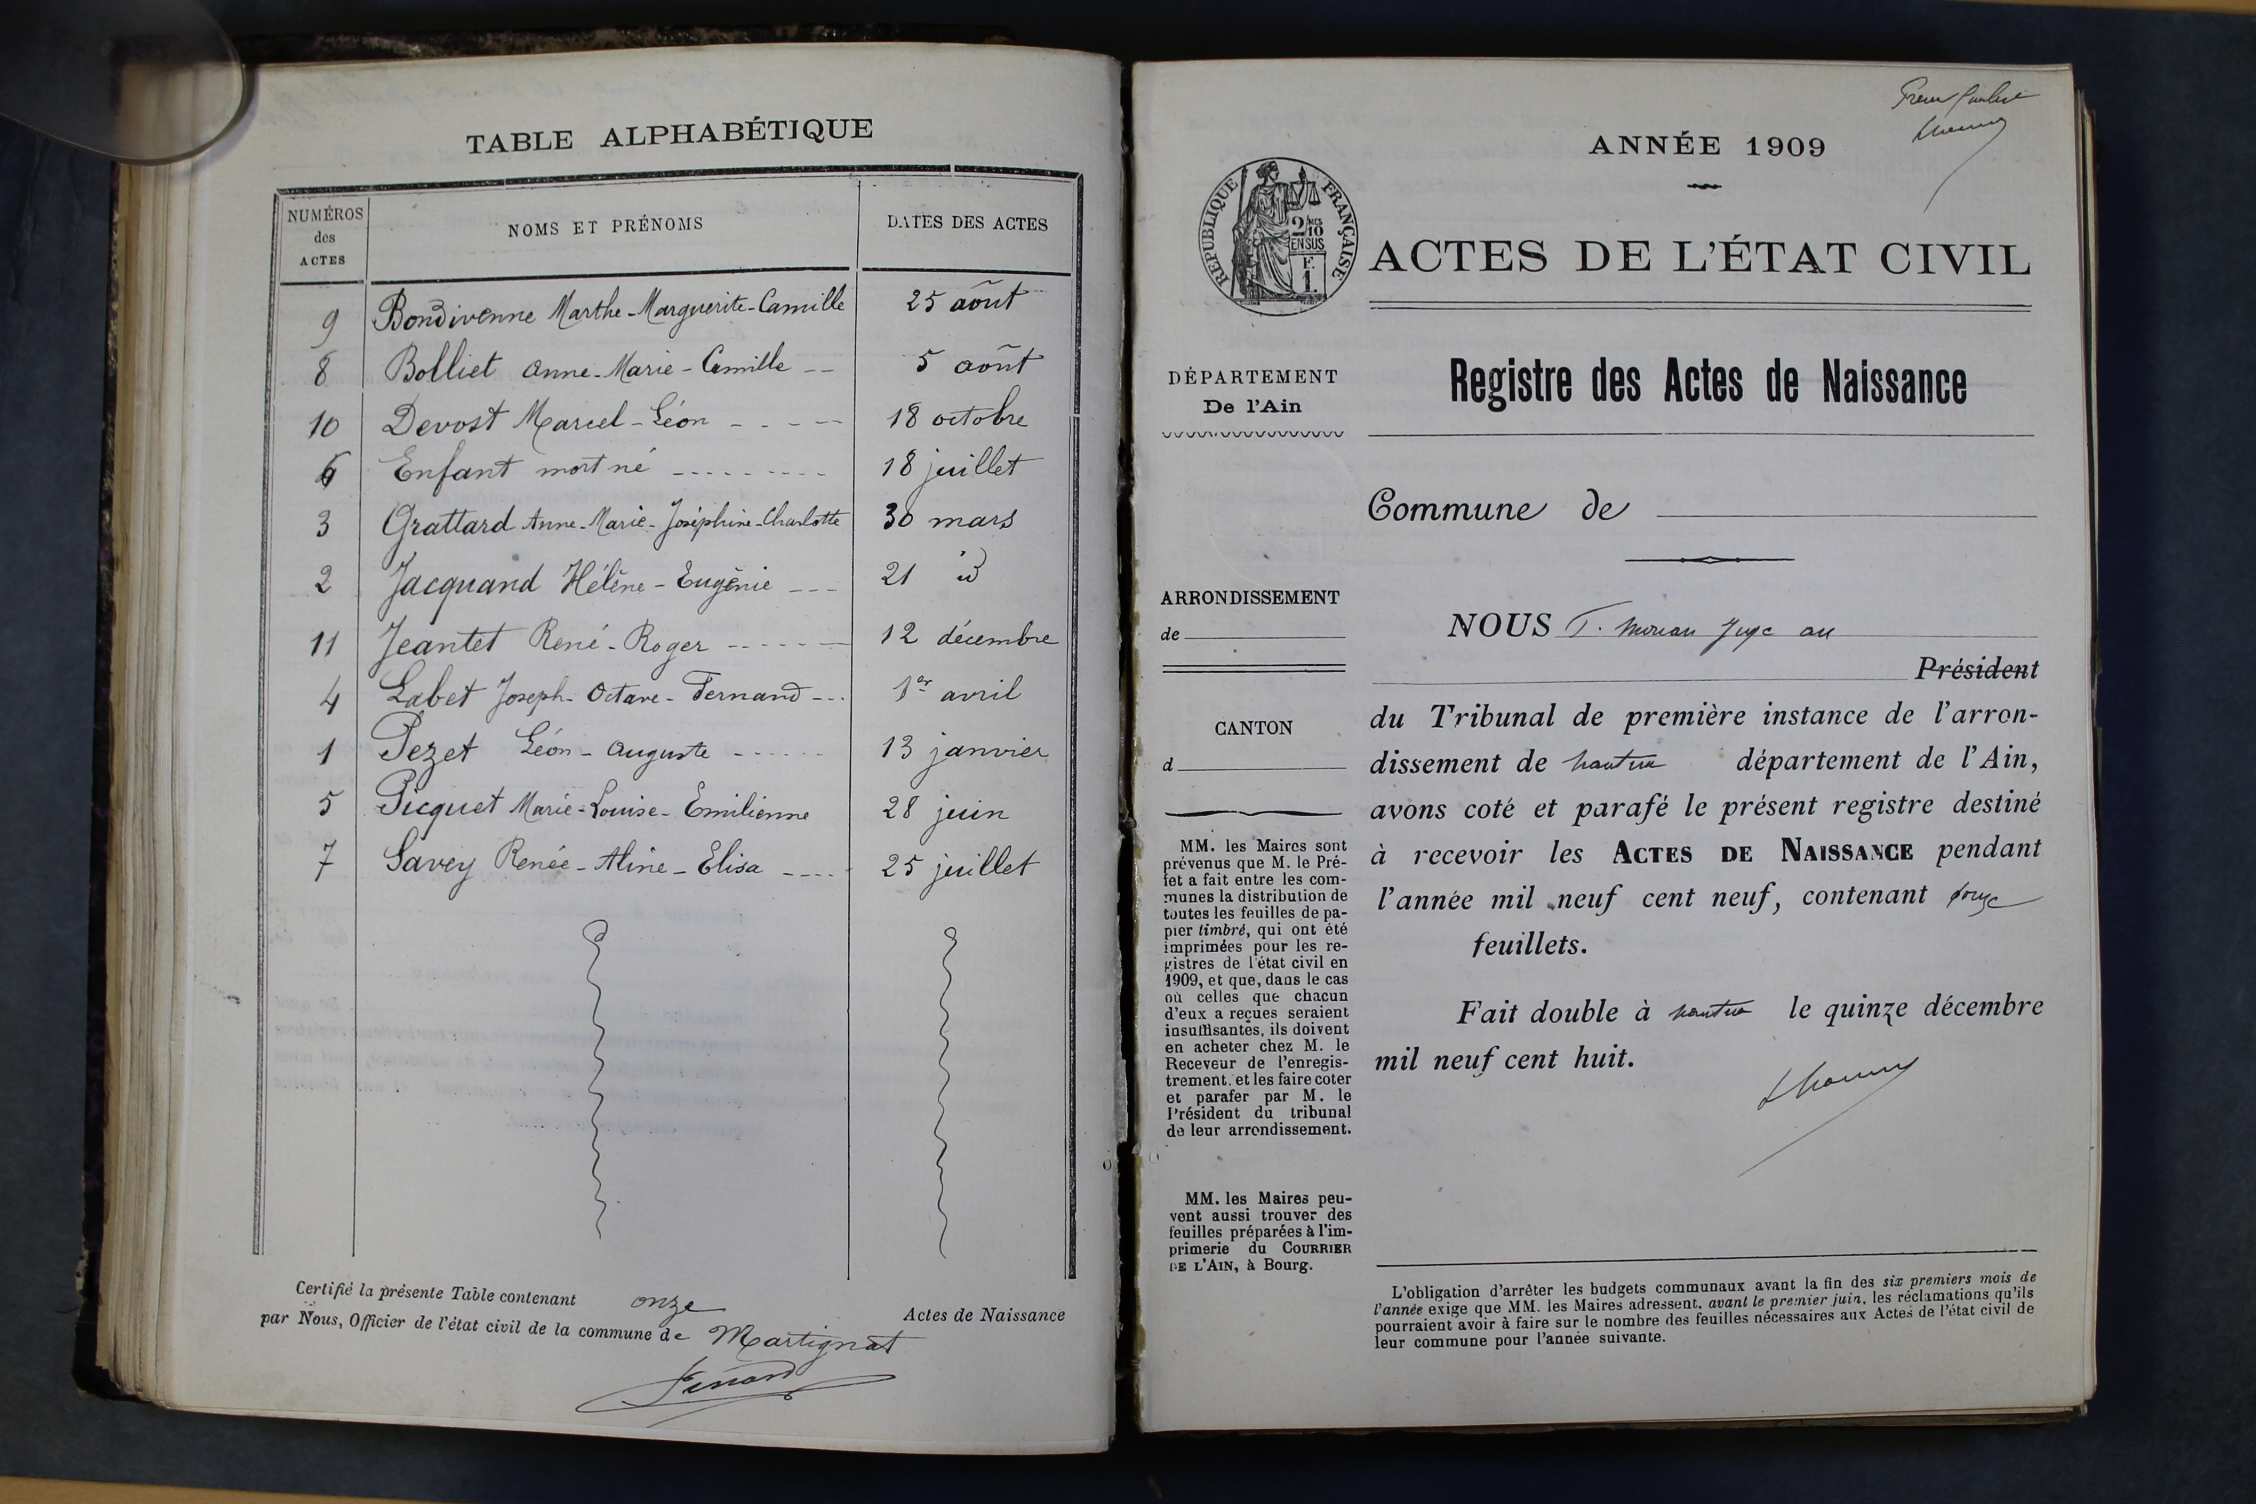 TABLE ALPHABÉTIQUE
NUMÉROS des ACTES
NOMS ET PRÉNOMS
DATES DES ACTES
9 Bondivenne Marthe-Marguerite-Camille 25 août
8 Bolliet Anne-Marie-Camille 5 août
10 Devost Marcel-Léon 18 octobre
6 Enfant mort né 18 juillet
3 Grattard Anne-Marie-Joséphine-Charlotte 30 mars
2 Jacquand Hélène-Eugénie 21 id
11 Jeantet René-Roger 12 décembre
4 Labet Joseph-Octave-Fernand 1er avril
1 Pezet Léon-Auguste 13 janvier
5 Picquet Marie-Louise-Emilienne 28 juin
7 Savey Renée-Aline-Elisa 25 juillet
Certifié la présente Table contenant onze Actes de Naissance
par Nous, Officier de l'état civil de la commune de Martignat
ANNÉE 1909
RÉPUBLIQUE FRANÇAISE
2/10
EN SUS
F.
1.
ACTES DE L'ÉTAT CIVIL
DÉPARTEMENT
De l'Ain
Registre des Actes de Naissance
Commune de
ARRONDISSEMENT
de
CANTON
d
MM. les Maires sont
prévenus que M. le Pré-
fet a fait entre les com-
munes la distribution de
toutes les feuilles de pa-
pier timbré, qui ont été
imprimées pour les re-
gistres de l'état civil en
1909, et que, dans le cas
où celles que chacun
d'eux a reçues seraient
insuffisantes, ils doivent
en acheter chez M. le
Receveur de l'enregis-
trement. et les faire coter
et parafer par M. le
Président du tribunal
de leur arrondissement.
MM. les Maires peu-
vent aussi trouver des
feuilles préparées à l'im-
primerie du COURRIER
DE L'AIN, à Bourg.
NOUS Juge au
Président
du Tribunal de première instance de l'arron-
dissement de nantua département de l'Ain,
avons coté et parafé le présent registre destiné
à recevoir les ACTES DE NAISSANCE pendant
l'année mil neuf cent neuf, contenant douze
feuillets.
Fait double à nantua le quinze décembre
mil neuf cent huit.
L'obligation d'arrêter les budgets communaux avant la fin des six premiers mois de
l'année exige que MM. les Maires adressent, avant le premier juin, les réclamations qu'ils
pourraient avoir à faire sur le nombre des feuilles nécessaires aux Actes de l'état civil de
leur commune pour l'année suivante.